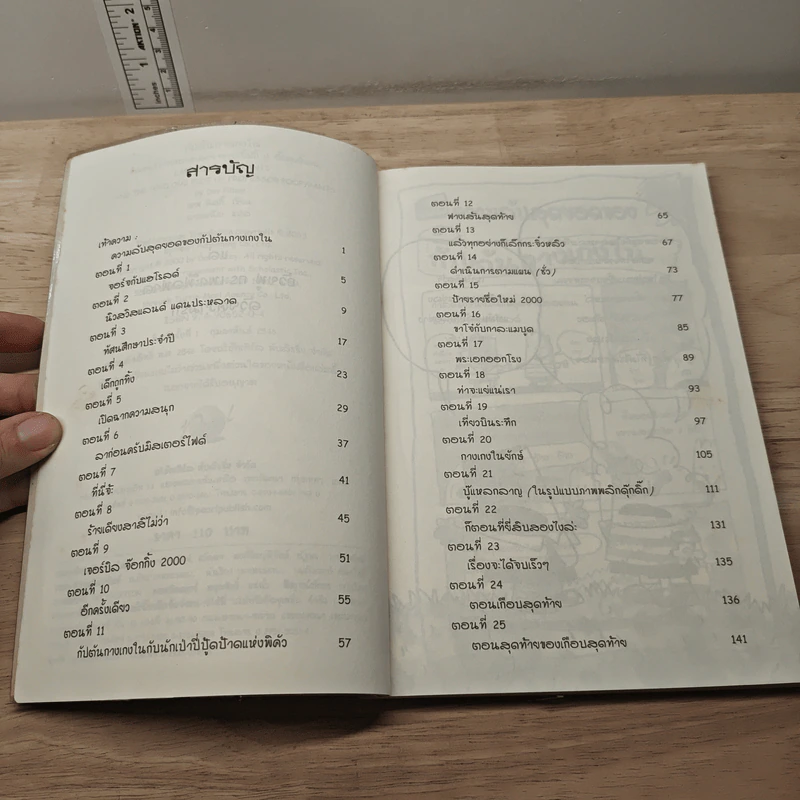 สารบัญ
เท้าความ :
ความลับสุดยอดของกัปต้นกางเกงใน 1
ตอนที่ 1
จอร์จกับแฮโรลด์ 5
ตอนที่ 2
นิวสวิสแลนด์ แดนประหลาด 9
ตอนที่ 3
ทัศนศึกษาประจำปี 17
ตอนที่ 4
เด็กถูกทิ้ง 23
ตอนที่ 5
เปิดฉากความสนุก 29
ตอนที่ 6
ลาก่อนครับมิสเตอร์ไฟด์ 37
ตอนที่ 7
ที่นี่จ้ะ 41
ตอนที่ 8
ร้ายเดียงสาสิไม่ว่า 45
ตอนที่ 9
เจอร์บิล จ๊อกกิ้ง 2000 51
ตอนที่ 10
อีกครั้งเดียว 55
ตอนที่ 11
กัปต้นกางเกงในกับนักเป่าปี่ปู้ดป้าดแห่งพิคัว 57
ตอนที่ 12
ฟางเส้นสุดท้าย 65
ตอนที่ 13
แล้วทุกอย่างก็เล็กกระจิ๋วหลิว 67
ตอนที่ 14
ดำเนินการตามแผน (ชั่ว) 73
ตอนที่ 15
ป้ายรายชื่อใหม่ 2000 77
ตอนที่ 16
ขาโจ๋กับกาละแมบูด 85
ตอนที่ 17
พระเอกออกโรง 89
ตอนที่ 18
ท่าจะแย่แน่เรา 93
ตอนที่ 19
เที่ยวบินระทึก 97
ตอนที่ 20
กางเกงในยักษ์ 105
ตอนที่ 21
บู๊แหลกลาญ (ในรูปแบบภาพพลิกดุ๊กดิ๊ก) 111
ตอนที่ 22
ก็ตอนที่ยี่สิบสองไงล่ะ 131
ตอนที่ 23
เรื่องจะได้จบเร็วๆ 135
ตอนที่ 24
ตอนเกือบสุดท้าย 136
ตอนที่ 25
ตอนสุดท้ายของเกือบสุดท้าย 141
ARTION
inches
1
2